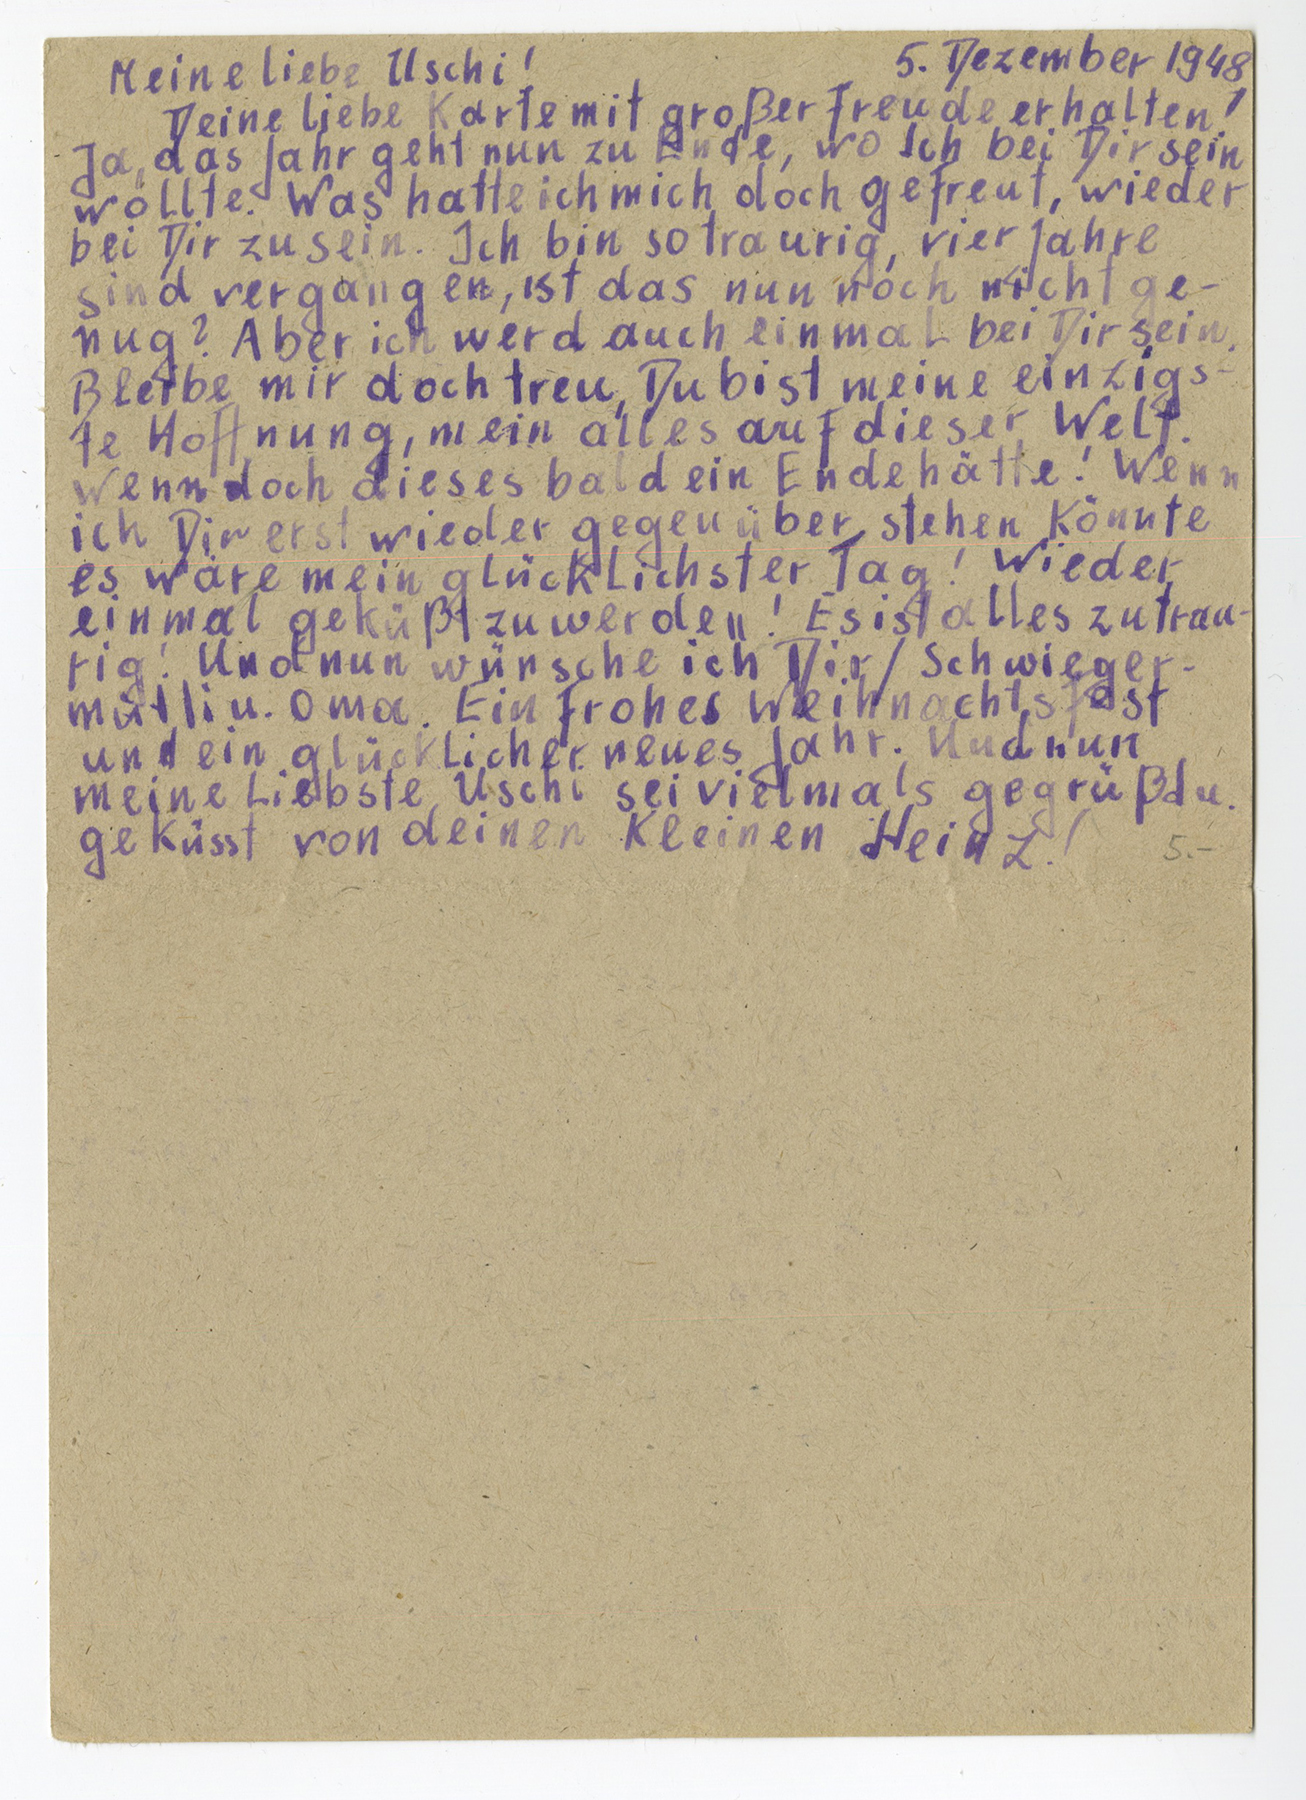 Meine liebe Uschi! 5. Dezember 1948
Deine liebe Karte mit großer Freude erhalten!
Ja, das Jahr geht nun zu Ende, wo ich bei Dir sein
wollte. Was hatte ich mich doch gefreut, wieder
bei Dir zu sein. Ich bin so traurig, vier Jahre
sind vergangen, ist das nun noch nicht ge-
nug? Aber ich werd auch einmal bei Dir sein.
Bleibe mir doch treu, Du bist meine einzigs-
te Hoffnung, mein alles auf dieser Welt.
Wenn doch dieses bald ein Ende hätte! Wenn
ich Dir erst wieder gegenüber stehen könnte
es wäre mein glücklichster Tag! Wieder
einmal geküßt zu werden! Es ist alles zu trau-
rig! Und nun wünsche ich Dir/ Schwieger-
mutti u. Oma. Ein frohes Weihnachtsfest
und ein glücklicher neues Jahr. Und nun
meine Liebste Uschi sei vielmals gegrüßd u.
geküsst von deinen Kleinen Heinz!
5.-